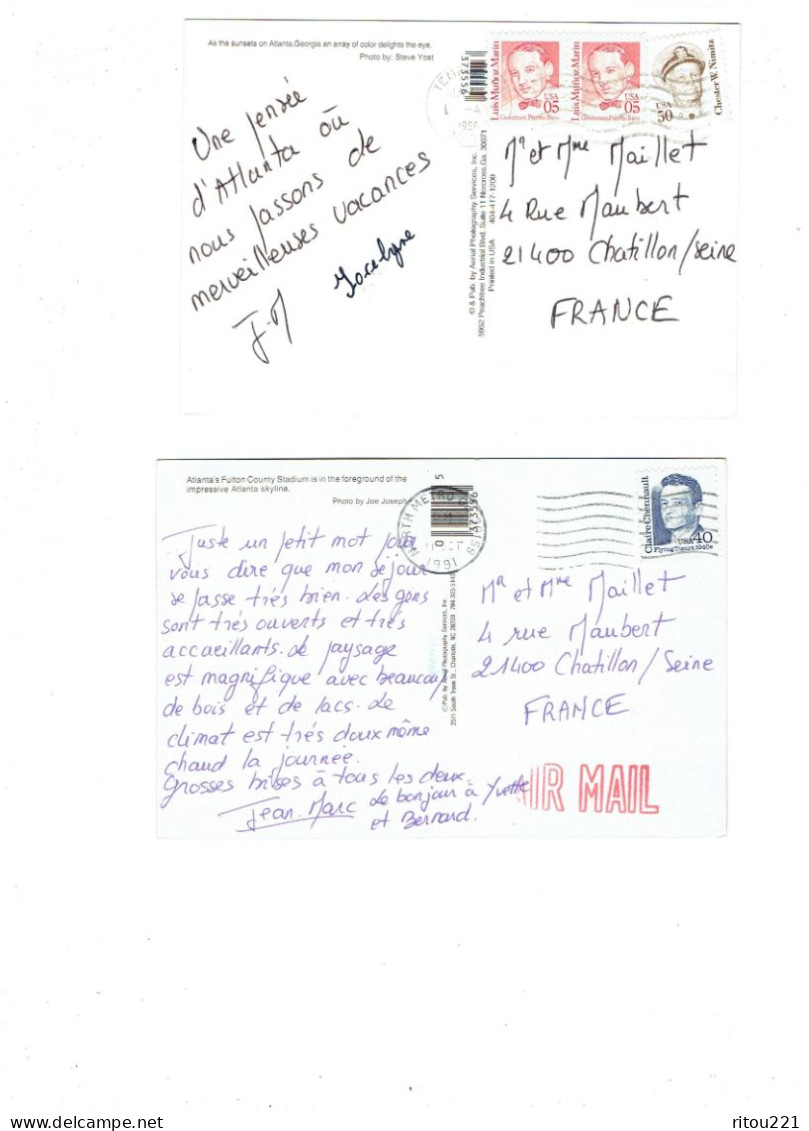 As the sunsets on Atlanta,Georgia an array of color delights the eye.
Photo by: Steve Yost
Une pensée
d'Atlanta où
nous passons de
merveilleuses vacances
J-M
Jocelyne
373556
© & Pub. by Aerial Photography Services, Inc.
5962 Peachtree Industrial Blvd. Suite 11 Norcross,Ga. 30071
Printed in USA 404-417-1200
Luis Muñoz Marín
USA
05
Governor, Puerto Rico
Luis Muñoz Marín
USA
05
Governor, Puerto Rico
USA
50
Chester W. Nimitz
Mr et Mme Maillet
4 Rue Maubert
21400 Chatillon/Seine
FRANCE
Atlanta's Fulton County Stadium is in the foreground of the
impressive Atlanta skyline.
Photo by Joe Joseph
Juste un petit mot pour
vous dire que mon séjour
se passe très bien. Les gens
sont très ouverts et très
accueillants. Le paysage
est magnifique avec beaucoup
de bois et de lacs. Le
climat est très doux même
chaud la journée.
Grosses bises à tous les deux.
Jean-Marc
Le bonjour à Yvette
et Bernard.
NORTH METRO
1991
373596
© Pub. by Aerial Photography Services, Inc.
Claire Chennault
USA 40
Flying Tigers, 1940s
Mr et Mme Maillet
4 rue Maubert
21400 Chatillon/Seine
FRANCE
AIR MAIL
ritou221